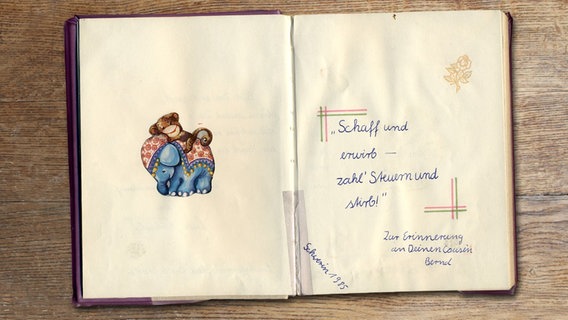 „Schaff und
erwirb –
zahl' Steuern und
stirb!"
Zur Erinnerung
an Deinen Cousin
Bernd
Schwerin 1985